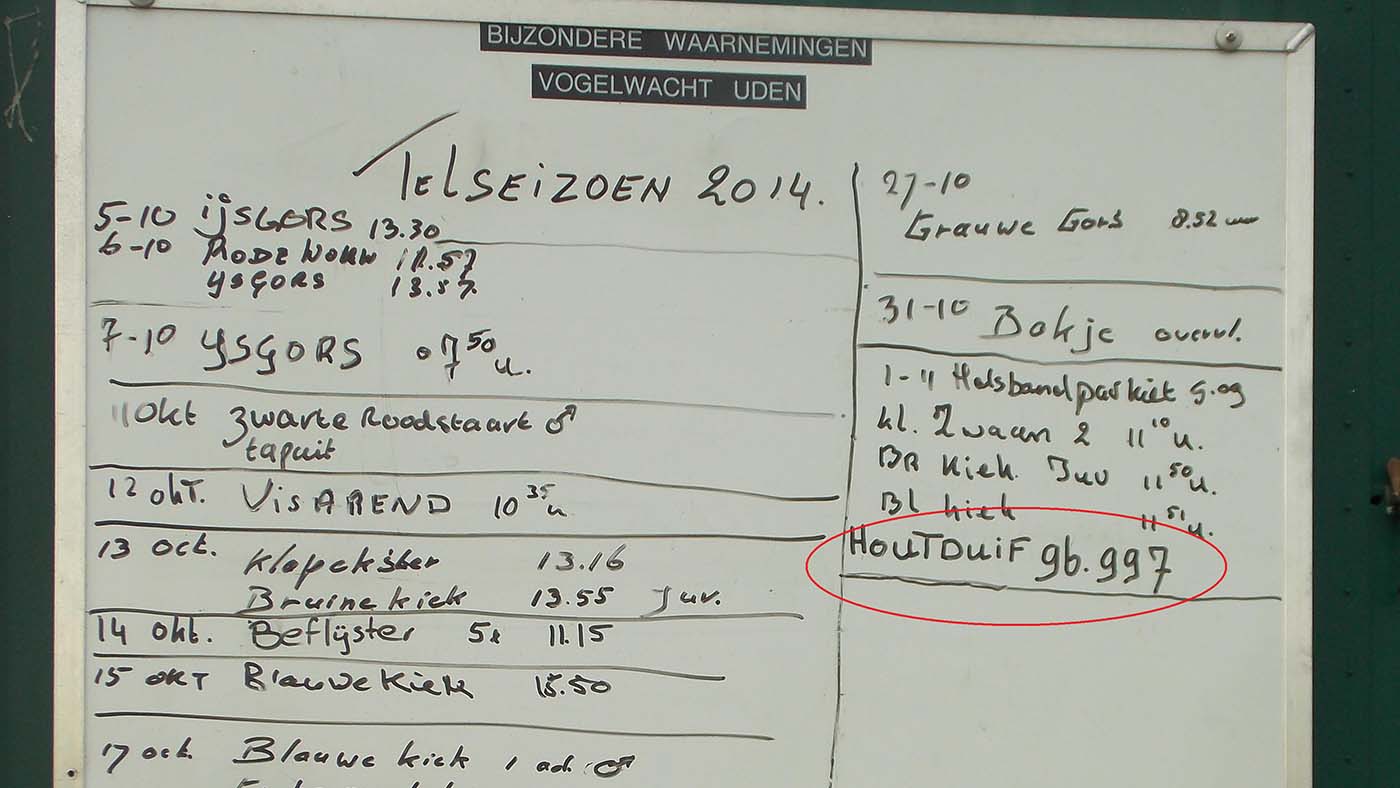 BIJZONDERE WAARNEMINGEN
VOGELWACHT UDEN
TELSEIZOEN 2014.
5-10 ijSGORS 13.30
6-10 RODE WOUW 11.57
YSGORS 13.57
7-10 YSGORS 07 50 u.
11 Okt Zwarte Roodstaart ♂
tapuit
12 okt. VISAREND 10 35 u
13 oct. Klapekster 13.16
Bruine kiek 13.55 Juv.
14 okt. Beflijster 5x 11.15
15 OKT Blauwe Kiek 15.50
17 oct. Blauwe kiek 1 ad. ♂
27-10
Grauwe Gors 8.52 uur
31-10 Bokje overvl.
1-11 Halsbandparkiet 9.09
kl. Zwaan 2 11 10 u.
BR kiek Juv 11 50 u.
Bl kiek 11 51 u.
HOUTDUIF 96.997